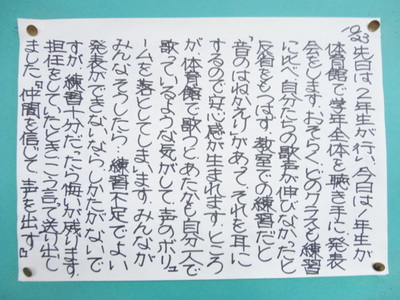 10/23 先日は2年生が行い、今日は1年生が
体育館で学年全体を聴き手に、発表
会をします。おそらく、どのクラスも練習
に比べ自分たちの歌声が伸びなかったと
反省をもつはず。教室での練習だと
「音のはねかえり」があって、それを耳に
するので好心感が生まれます。ところ
が、体育館で歌うと、あたかも自分一人で
歌っているような気がして、声のボリュ
ームを落としてしまいます。みんなが
みんな、そうしたら…練習不足でよい
発表ができないなら、しかたがないで
すが、練習十分だったら悔いが残ります。
担任をしていたとき、こう言って送り出し
ました。『仲間を信じて、声を出す。』